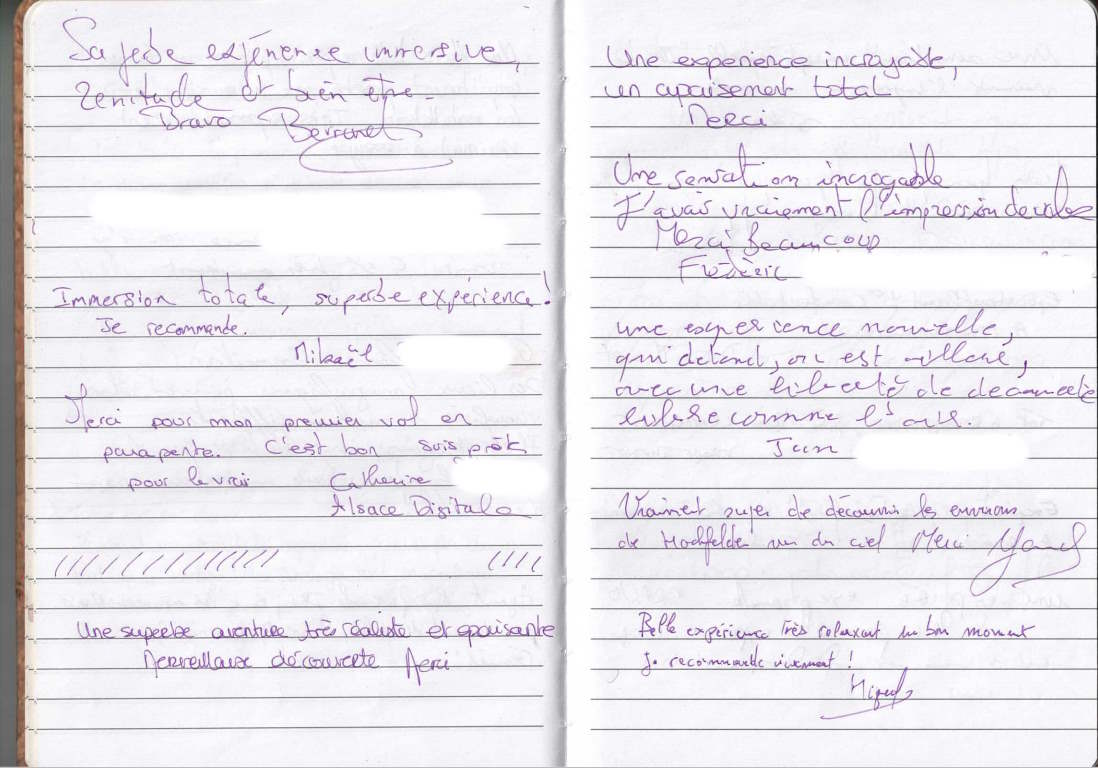 Superbe expérience immersive,
zenitude et bien être.
Bravo
Immersion totale, superbe expérience!
Je recommande.
Mikaël
Merci pour mon premier vol en
parapente. C'est bon suis prêt
pour le vrai Catherine
Alsace Digitale
Une superbe aventure très réaliste et apaisante
Merveilleuse découverte Merci
Une experience incroyable,
un apaisement total
Merci
Une sensation incroyable
J'avais vraiement l'impression de voler
Merci Beaucoup
Frédéric
une experience nouvelle,
qui detend, on est
avec une liberté de
libre comme l'air.
Vraiment super de découvrir les environs
de Hochfelden vu du ciel Merci
Belle expérience très relaxant un bon moment
Je recommande vivement !